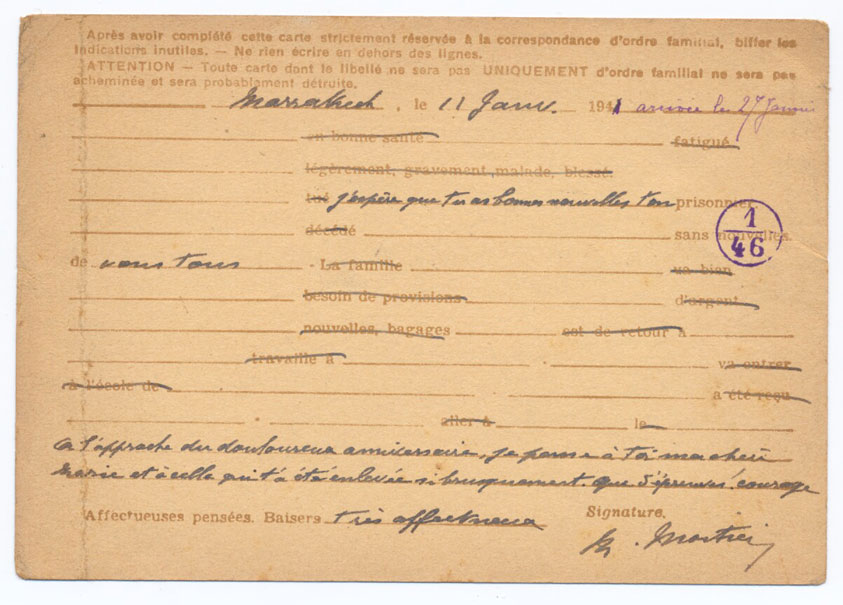 Après avoir complété cette carte strictement réservée à la correspondance d'ordre familial, biffer les
indications inutiles. — Ne rien écrire en dehors des lignes.
ATTENTION — Toute carte dont le libellé ne sera pas UNIQUEMENT d'ordre familial ne sera pas
acheminée et sera probablement détruite.
Marrakech, le 11 Janv. 1941 arrivée le 27 Janvier
en bonne santé fatigué
légèrement, gravement malade, blessé
tué j'espère que tu as bonnes nouvelles ton prisonnier
décédé sans nouvelles
1
46
de vous tous - La famille va bien
besoin de provisions d'argent
nouvelles, bagages est de retour à
travaille à va entrer
à l'école de a été reçu
aller à le
à l'approche du douloureux anniversaire, je pense à toi ma chère
Marie et à celle qui t'a été enlevée si brusquement. que d'épreuves! courage
Affectueuses pensées. Baisers très affectueux Signature.